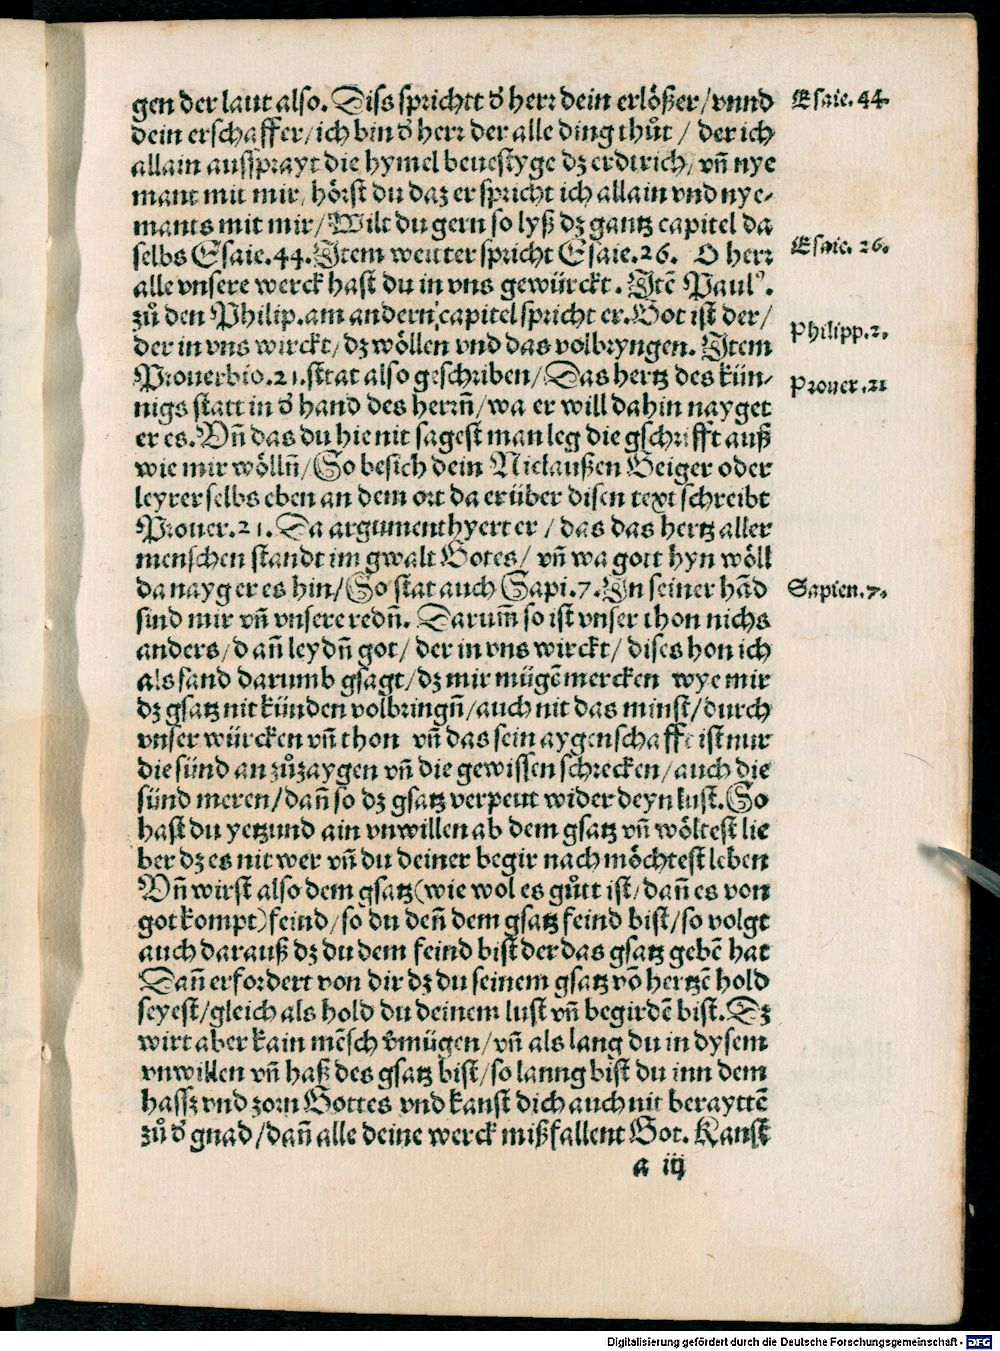 gen der laut also. Diss sprichtt d' herr dein erlößer/vnnd
Esaie. 44.
dein erschaffer/ich bin d' herr der alle ding thůt / der ich
allain aussprayt die hymel beuestyge dz erdtrich/ vñ nye
mant mit mir/ hörst du daz er spricht ich allain vnd nye-
mants mit mir/Wilt du gern so lyß dz gantz capitel da
selbs Esaie.44.Item weitter spricht Esaie.26. O herr
Esaie. 26.
alle vnsere werck hast du in vns gewürckt. Itē Paulꝰ.
zů den Philip.am andern capitel spricht er.Got ist der/
Philipp.2.
der in vns wirckt/dz wöllen vnd das volbryngen. Item
Prouerbio.21.sttat also geschriben/Das hertz des kün-
Prouer.21
nigs statt in d' hand des herrñ/wa er will dahin nayget
er es.Vñ das du hie nit sagest man leg die gschrifft auß
wie mir wöllñ/So besich dein Niclaußen Geiger oder
leyrer selbs eben an dem ort da er über disen text schreibt
Prouer.21.Da argumenthyert er / das das hertz aller
menschen standt im gwalt Gotes/ vñ wa gott hyn wöll
da nayg er es hin/So stat auch Sapi.7.In seiner hād
Sapien.7.
sind mir vñ vnsere redñ. Darum̄ so ist vnser thon nichs
anders/dañ leydñ got/ der in vns wirckt/ dises hon ich
als sand darumb gsagt/dz mir mügē mercken wye mir
dz gsatz nit künden volbringñ/auch nit das minst/durch
vnser würcken vñ thon vñ das sein aygenschafft ist nur
die sünd an zůzaygen vñ die gewissen schrecken/auch die
sünd meren/dañ so dz gsatz verpeut wider deyn lust.So
hast du yetzund ain vnwillen ab dem gsatz vñ wöltest lie
ber dz es nit wer vñ du deiner begir nach möchtest leben
Vñ wirst also dem gsatz(wie wol es gůtt ist/dañ es von
got kompt)feind/so du deñ dem gsatz feind bist/so volgt
auch darauß dz du dem feind bist der das gsatz gebē hat
Dañ erfordert von dir dz du seinem gsatz vō hertzē hold
seyest/gleich als hold du deinem lust vñ begirdē bist.Dz
wirt aber kain mēsch v'mügen/vñ als lang du in dysem
vnwillen vñ haß des gsatz bist/so lanng bist du inn dem
hassz vnd zorn Gottes vnd kanst dich auch nit beraytē
zů d' gnad/dañ alle deine werck mißfallent Got. Kanst
a iij
Digitalisierung gefördert durch die Deutsche Forschungsgemeinschaft - DFG